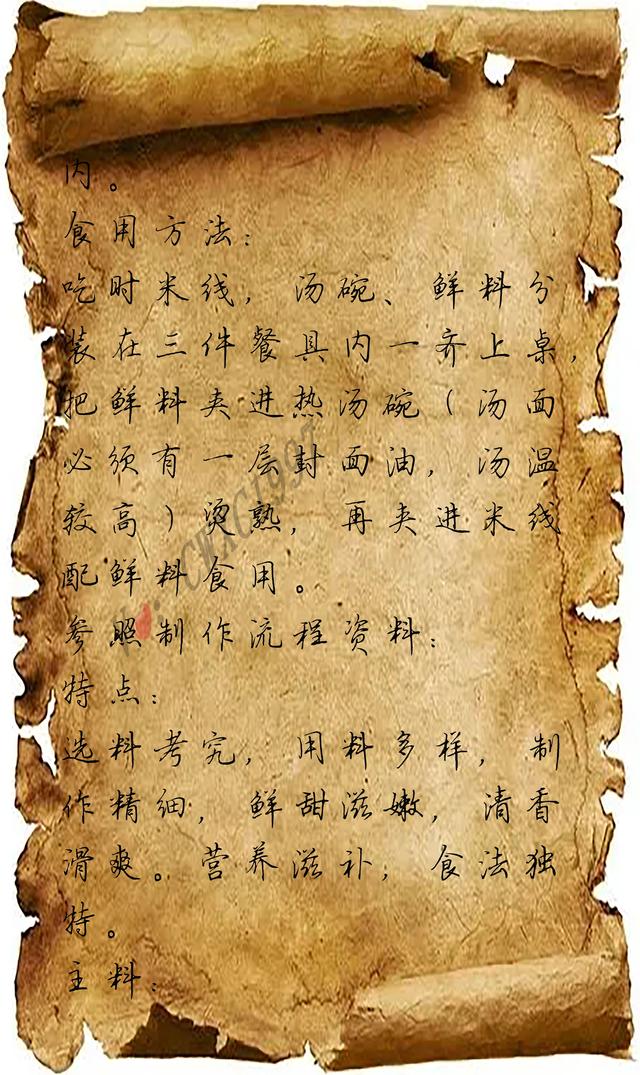 内。
食用方法：
吃时米线，汤碗、鲜料分
装在三件餐具内一齐上桌，
把鲜料夹进热汤碗（汤面
必须有一层封面油，汤温
较高）烫熟，再夹进米线
配鲜料食用。
参照制作流程资料：
特点：
选料考究，用料多样，制
作精细，鲜甜滋嫩，清香
滑爽。营养滋补，食法独
特。
主料：